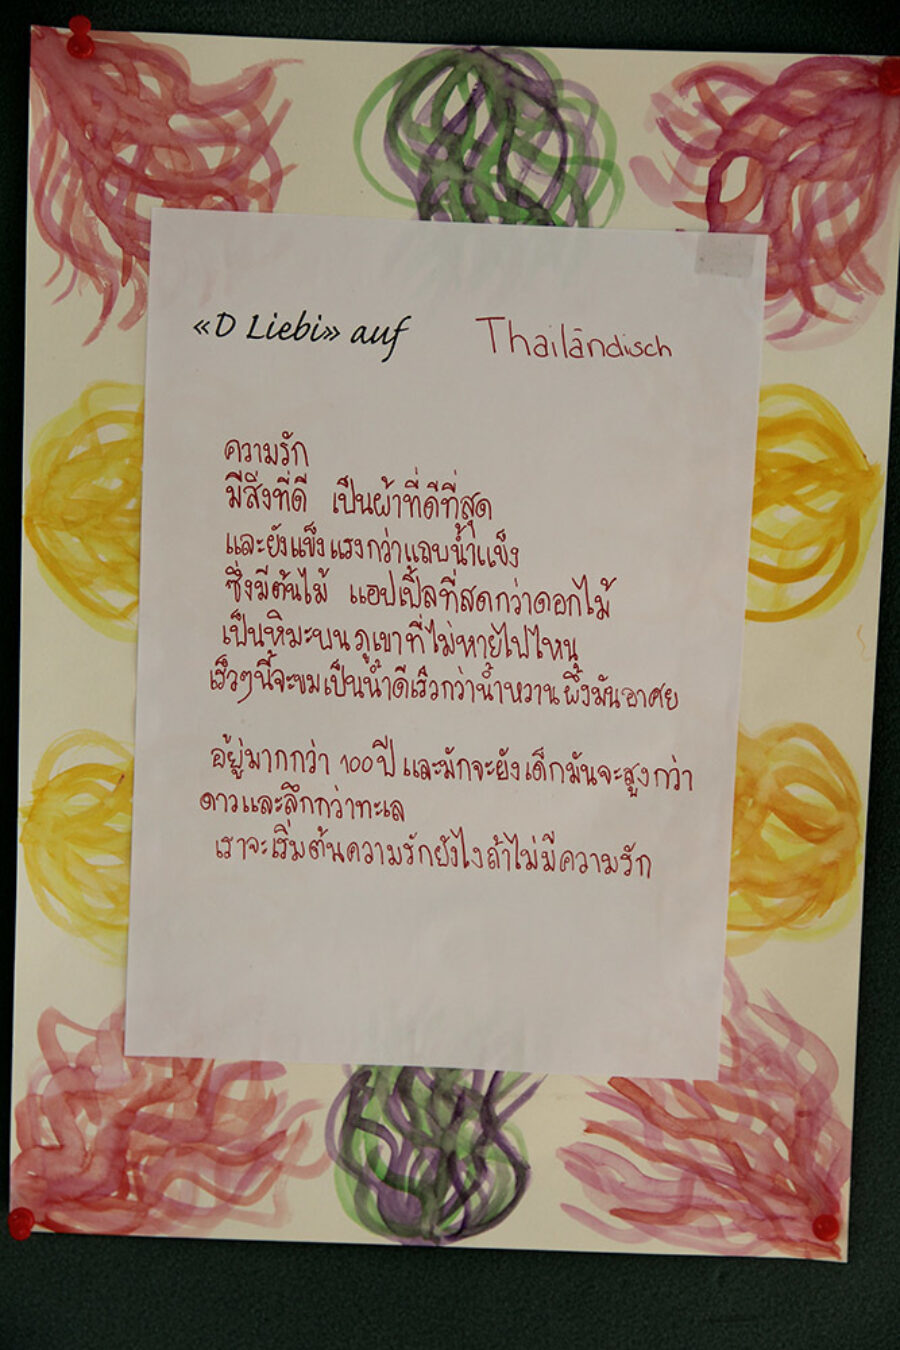 «D Liebi» auf Thailändisch
ความรัก
มีสิ่งที่ดี เป็นผ้าที่ดีที่สุด
และยังแข็งแรงกว่าแถบน้ำแข็ง
ซึ่งมีต้นไม้ แอปเปิ้ลที่สดกว่าดอกไม้
เป็นหิมะบนภูเขาที่ไม่หายไปไหน
เร็วๆนี้จะขมเป็นน้ำดีเร็วกว่าน้ำหวานผึ้งมันอาศัย
อยู่มากกว่า 100 ปี และมักจะยังเด็กมันจะสูงกว่า
ดาวและลึกกว่าทะเล
เราจะเริ่มต้นความรักยังไงถ้าไม่มีความรัก